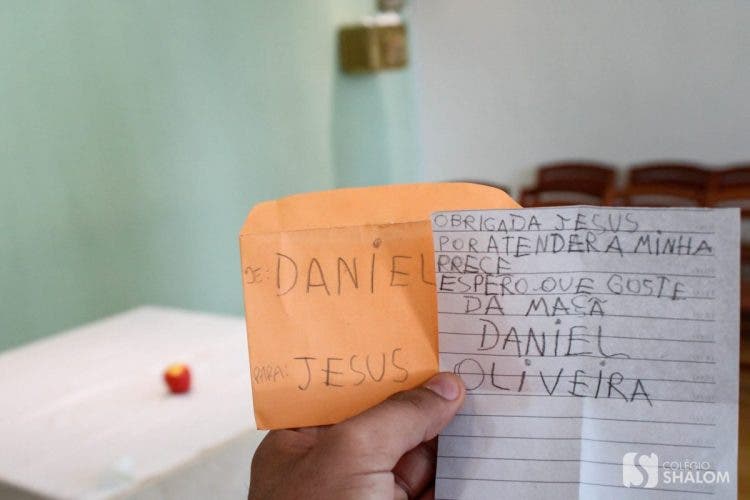 DE: DANIEL
PARA: JESUS
OBRIGADA JESUS
POR ATENDER A MINHA
PRECE
ESPERO QUE GOSTE
DA MAÇÃ
DANIEL
OLIVEIRA
COLÉGIO
SHALOM